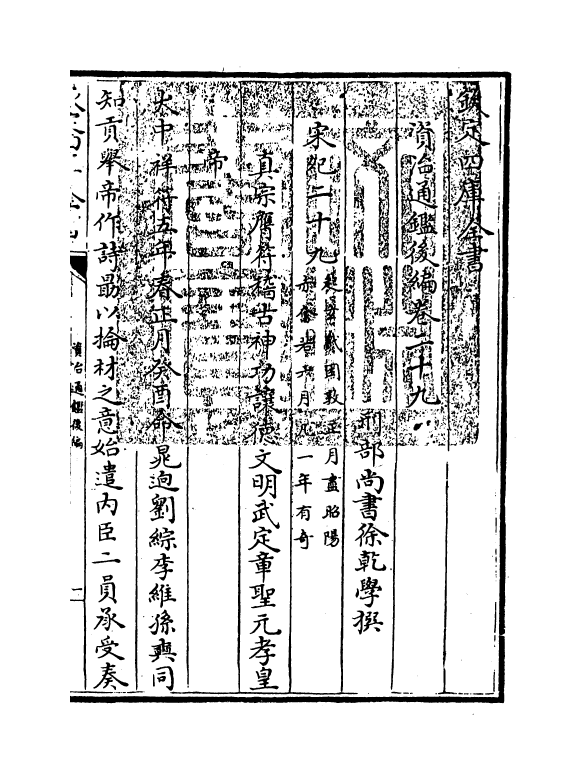 欽定四庫全書
資治通鑑後編卷二十九
刑部尚書徐乾學撰
宋紀二十九
起玄黓困敦正月盡昭陽
赤奮若六月凡一年有奇
真宗膺符稽古神功讓德文明武定章聖元孝皇
帝
大中祥符五年春正月癸酉命晁迥劉綜李維孫奭同
知貢舉帝作詩勗以掄材之意始遣内臣二員承受奏
資治通鑑後編